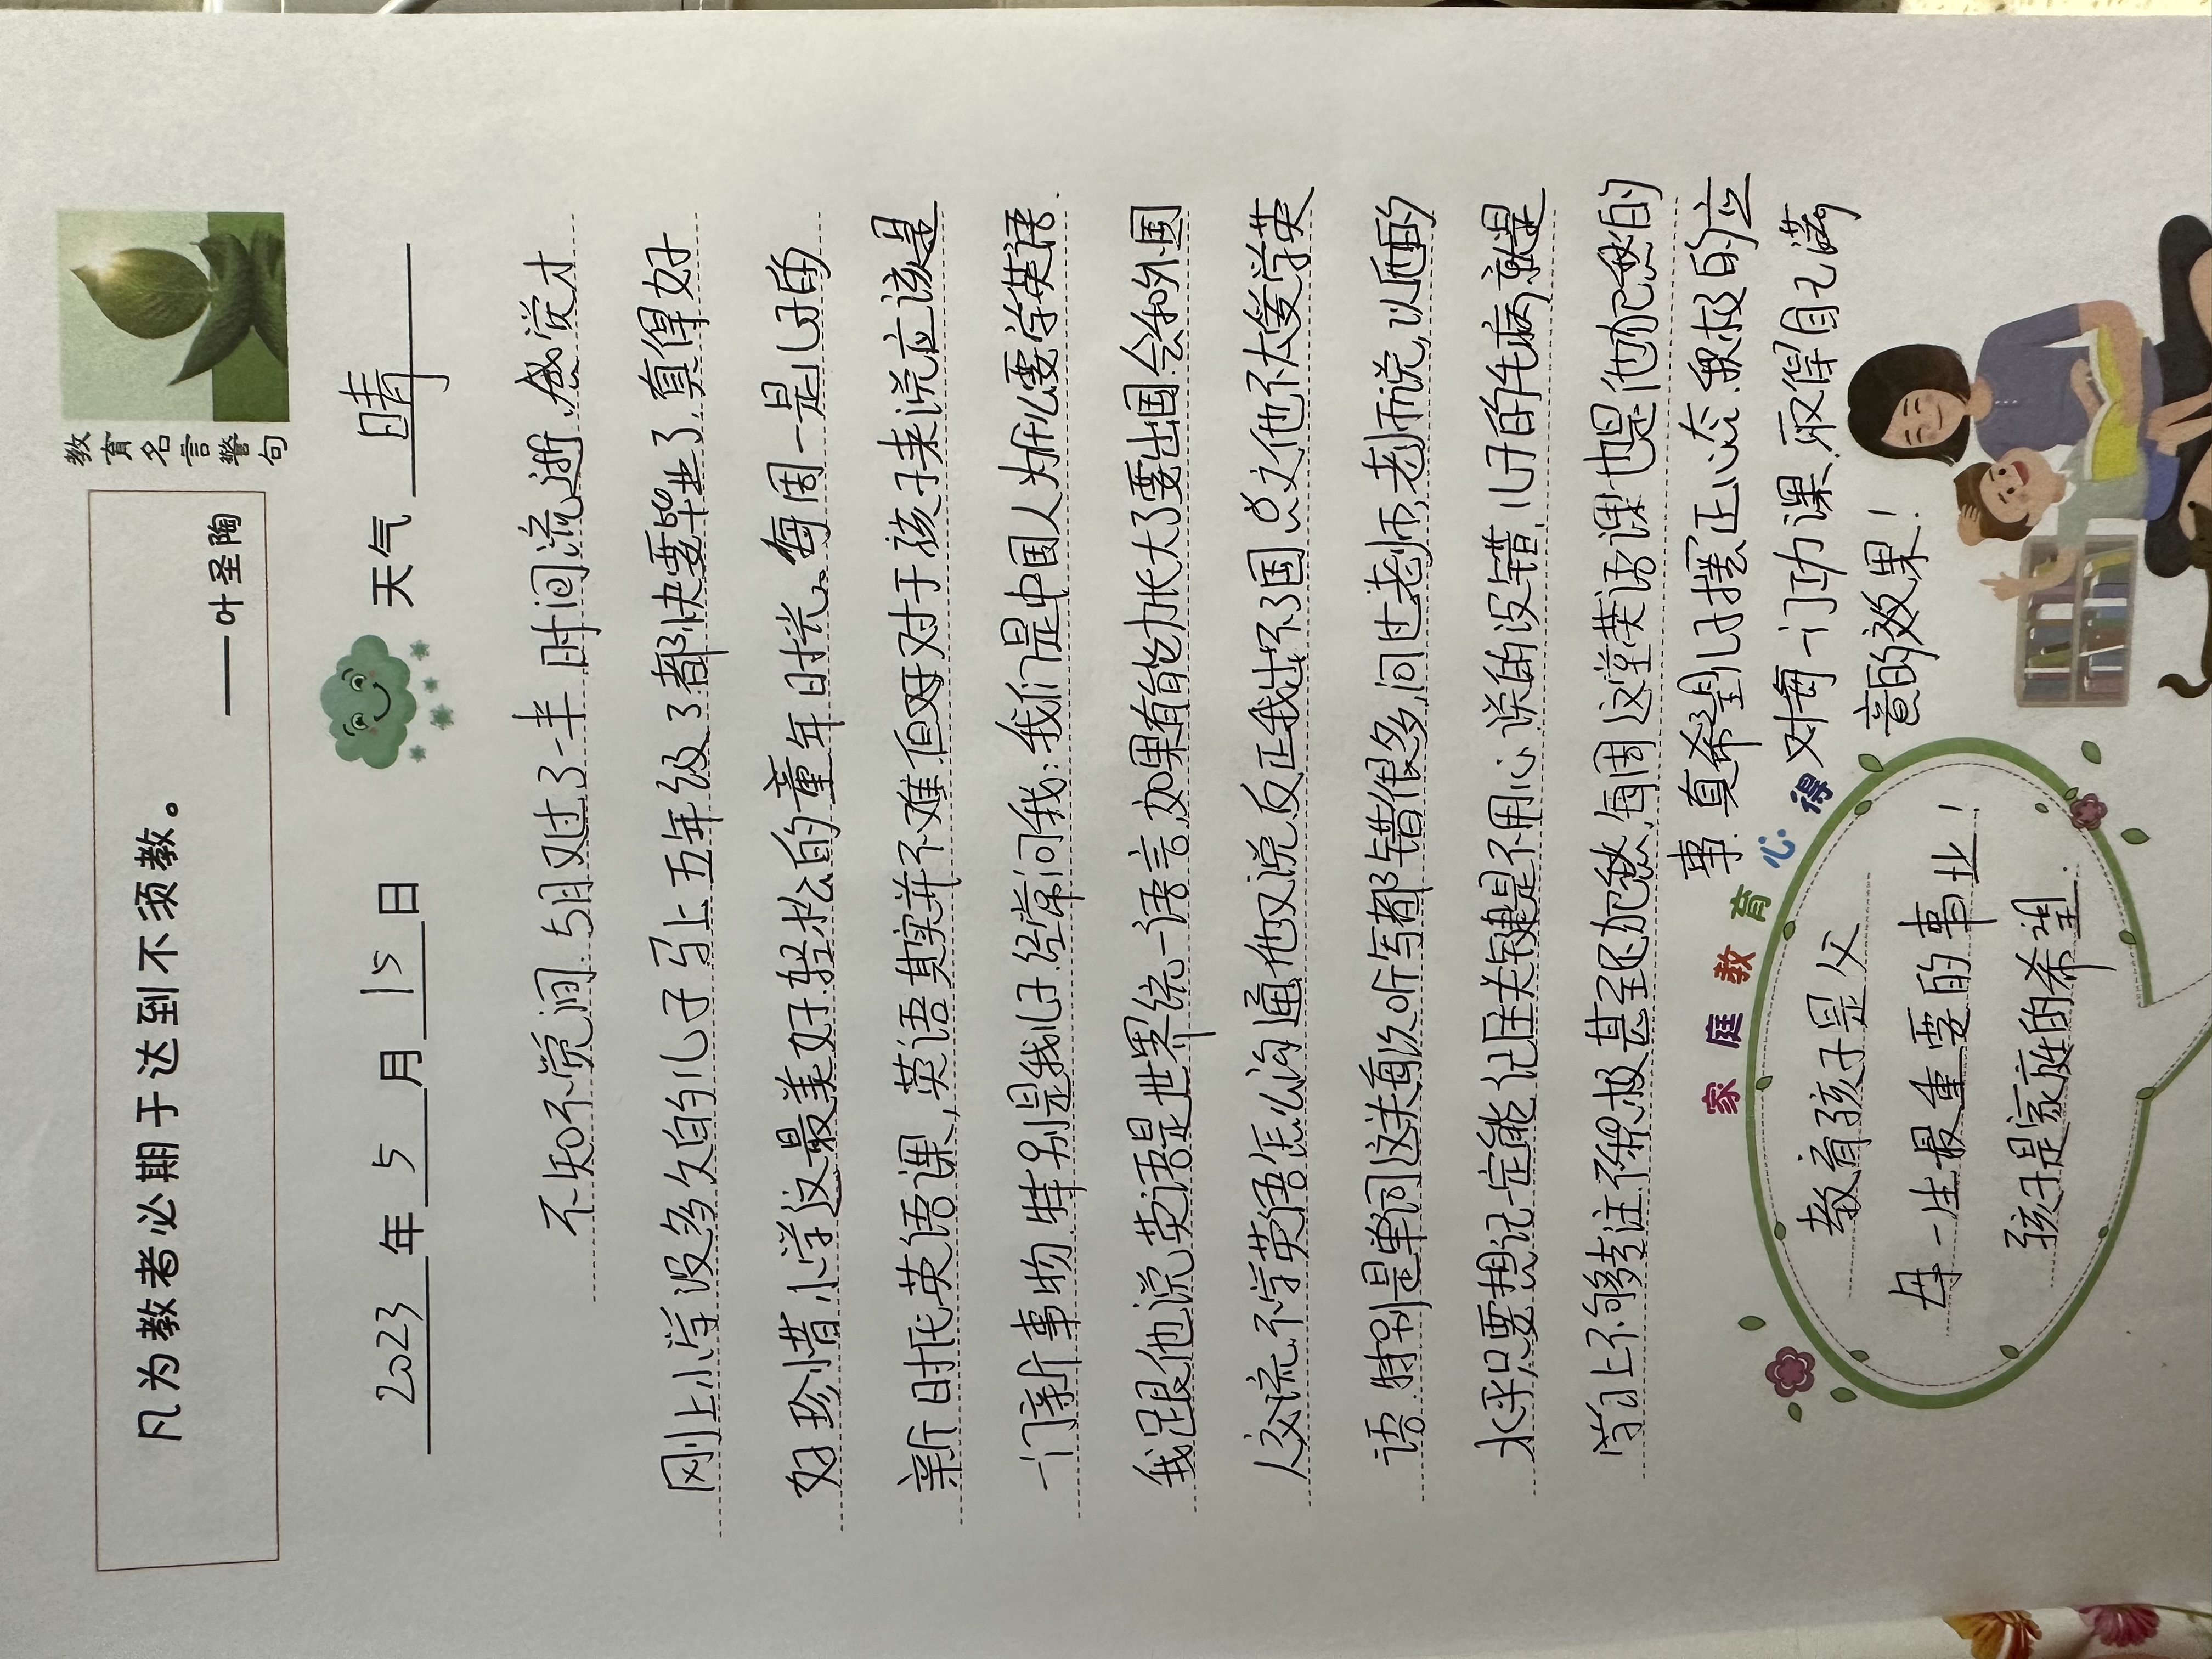 教育名言警句
凡为教者必期于达到不须教。
——叶圣陶
2023年5月15日 天气 晴
不知不觉间,5月又过了一半,时间流逝,感觉才
刚上小学没多久的儿子马上五年级了都快要毕业了,真得好
好珍惜小学这最美好轻松的童年时光。每周一是儿子的
新时代英语课,英语其实并不难,但对于孩子来说应该是
一门新事物,特别是我儿子经常问我:我们是中国人为什么要学英语.
我是跟他说英语是世界统一语言,如果有能力长大了要出国会和外国
人交流,不学英语怎么沟通,他又说反正我出不了国,总之他不太爱学英
语,特别是单词这关,每次听写都错很多,问过老师,老师说,以他的
水平只要想记一定能记住,关键是不用心,说的没错,儿子的毛病就是
学习上不够专注不积极,甚至还犯愁,每周这堂英语课也是他犯愁的
事.真希望儿子摆正心态,积极的应
对每一门功课,取得自己满
意的效果!
家庭教育心得
教育孩子是父
母一生最重要的事业!
孩子是家庭的希望.